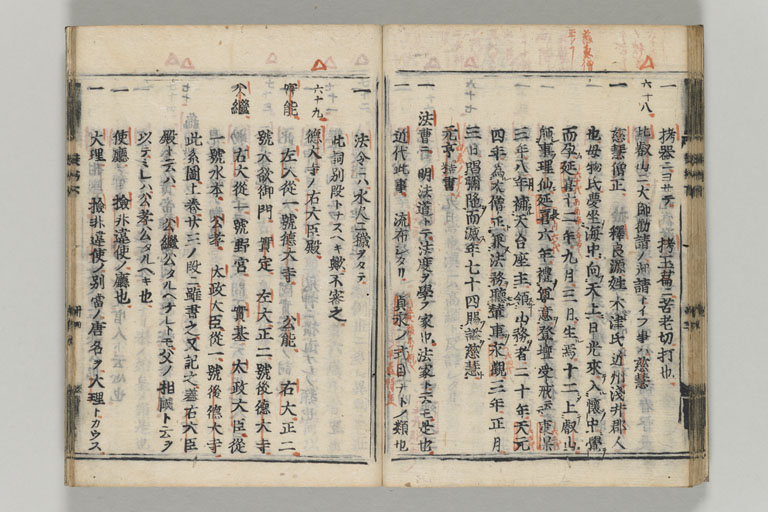 一 拷器ニヨサテ 拷玉篇ニ苦老切打也
六十八
一 比叡山三大師勸請ノ起請トイフ事ハ慈慧
慈慧僧正 釋良源姓木津氏近州淺井郡人
也母物氏夢坐海中向天上日光來入懷中覺
而孕延喜十二年九月三日生焉十二上叡山
師事理仙延長六年禮尊意登壇受戒
三年八年補天台座主領山務者二十年天元
四年為大僧正兼法務聽輦車永觀三年正月
三日唱彌陁而滅年七十四賜諡慈慧
元亨釋書
一 法曹ニ 明法道トテ法度ヲ學フ家也法家ト云モ是也
近代此事 流布シタリ 貞永ノ式目ナトノ類也
一 法令ニハ水火ニ
此詞別段トナスヘキ歟不審之
六十九
一 德大寺ノ右大臣殿
實能 左大從一號德大寺 公能 右大正二
號大炊御門 實定 左大正二號後德大寺
公繼 右大從一號野宮 實基 太政大臣從
一號水本 公孝 太政大臣從一號後德大寺
此系圖上卷廿三ノ段ニ雖書之又記之蓋右大臣
殿ト云ハ 公繼公タルヘケレトモ父ノ相國ト云ヲ
以テミレハ公孝公タルヘキ也
一 使廳ノ 撿非違使ノ廳也
一 大理 撿非違使ノ別當ノ唐名ヲ大理トカウス